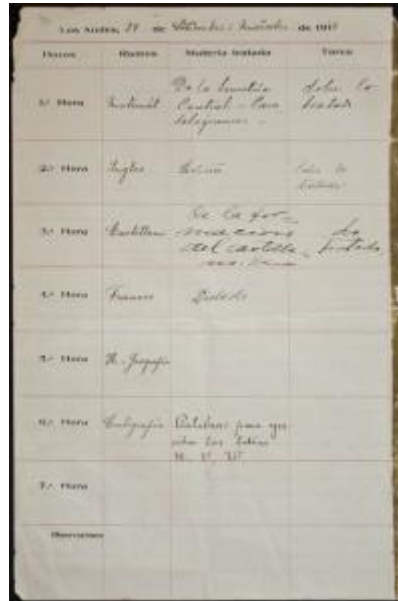 Los Andes, de Setiembre: Miércoles de 1917
Horas Ramos Materia tratada Tarea
1.ª Hora Matemát De la Simetría Central - Para lelogramos - Sobre lo tratado
2.ª Hora Ingles tratado
3.ª Hora Castellano De la for- macion del castella- no. lo tratado
4.ª Hora Frances Dictado
5.ª Hora H. Jeografía
6.ª Hora Caligrafía Palabras para que
M. V, W
7.ª Hora
Observaciones